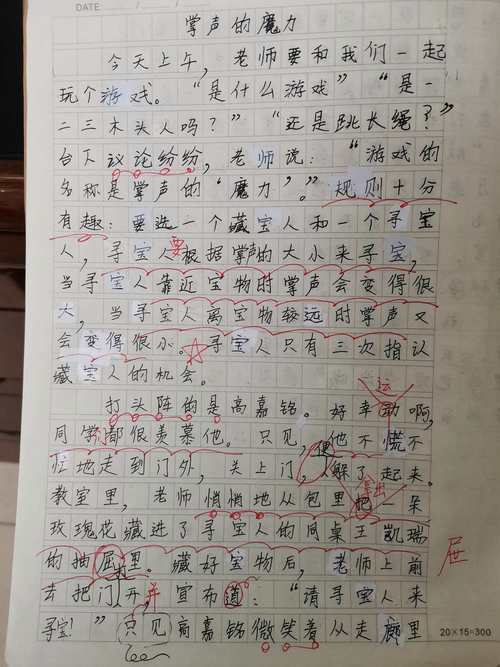 DATE
掌声的魔力
今天上午，老师要和我们一起
玩个游戏。“是什么游戏”“是一
二三木头人吗？”“还是跳长绳？”
台下议论纷纷，老师说：“游戏的
名称是掌声的“魔力”。”规则十分
有趣：要选一个藏宝人和一个寻宝
人，寻宝人要根据掌声的大小来寻宝，
当寻宝人靠近宝物时掌声会变得很
大，当寻宝人离宝物较远时掌声又
会变得很小。寻宝人只有三次指认
藏宝人的机会。
运
打头阵的是高嘉铭。好幸动啊，
同学都很羡慕他。只见，他不慌不
忙地走到门外，关上门，便躲了起来。
拿出
教室里，老师悄悄地从包里把一朵
玫瑰花藏进了寻宝人的同桌王凯瑞
的抽屈里。藏好宝物后，老师上前 屉
去把门打开，并宣布道：“请寻宝人来
寻宝！”只见高嘉铭微笑着从走廊里
20×15=300